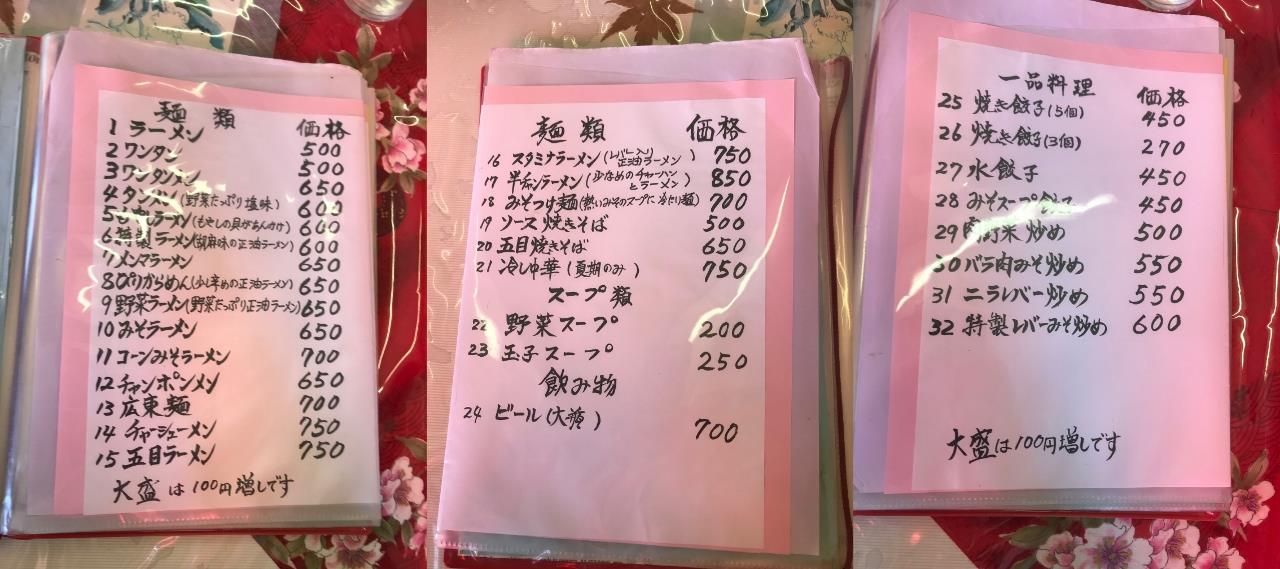 麺類 価格
1 ラーメン 500
2 ワンタン 500
3 ワンタンメン 650
4 タンメン(野菜たっぷり塩味) 600
5 もやしラーメン(もやしの具があんかけ) 600
6 特製ラーメン(胡麻味の正油ラーメン) 600
7 メンマラーメン 650
8 ぴりからめん(少し辛めの正油ラーメン) 650
9 野菜ラーメン(野菜たっぷり正油ラーメン) 650
10 みそラーメン 650
11 コーンみそラーメン 700
12 チャンポンメン 650
13 広東麺 700
14 チャーシューメン 750
15 五目ラーメン 750
大盛は100円増しです
麺類 価格
16 スタミナラーメン(レバー入り正油ラーメン) 750
17 半チャンラーメン(少なめのチャーハンとラーメン) 850
18 みそつけ麺(熱いみそのスープに冷たい麺) 700
19 ソース焼きそば 500
20 五目焼きそば 650
21 冷し中華(夏期のみ) 750
スープ類
22 野菜スープ 200
23 玉子スープ 250
飲み物
24 ビール(大瓶) 700
一品料理 価格
25 焼き餃子(5個) 450
26 焼き餃子(3個) 270
27 水餃子 450
28 みそスープ餃子 450
29 肉野菜炒め 500
30 バラ肉みそ炒め 550
31 ニラレバー炒め 550
32 特製レバーみそ炒め 600
大盛は100円増しです